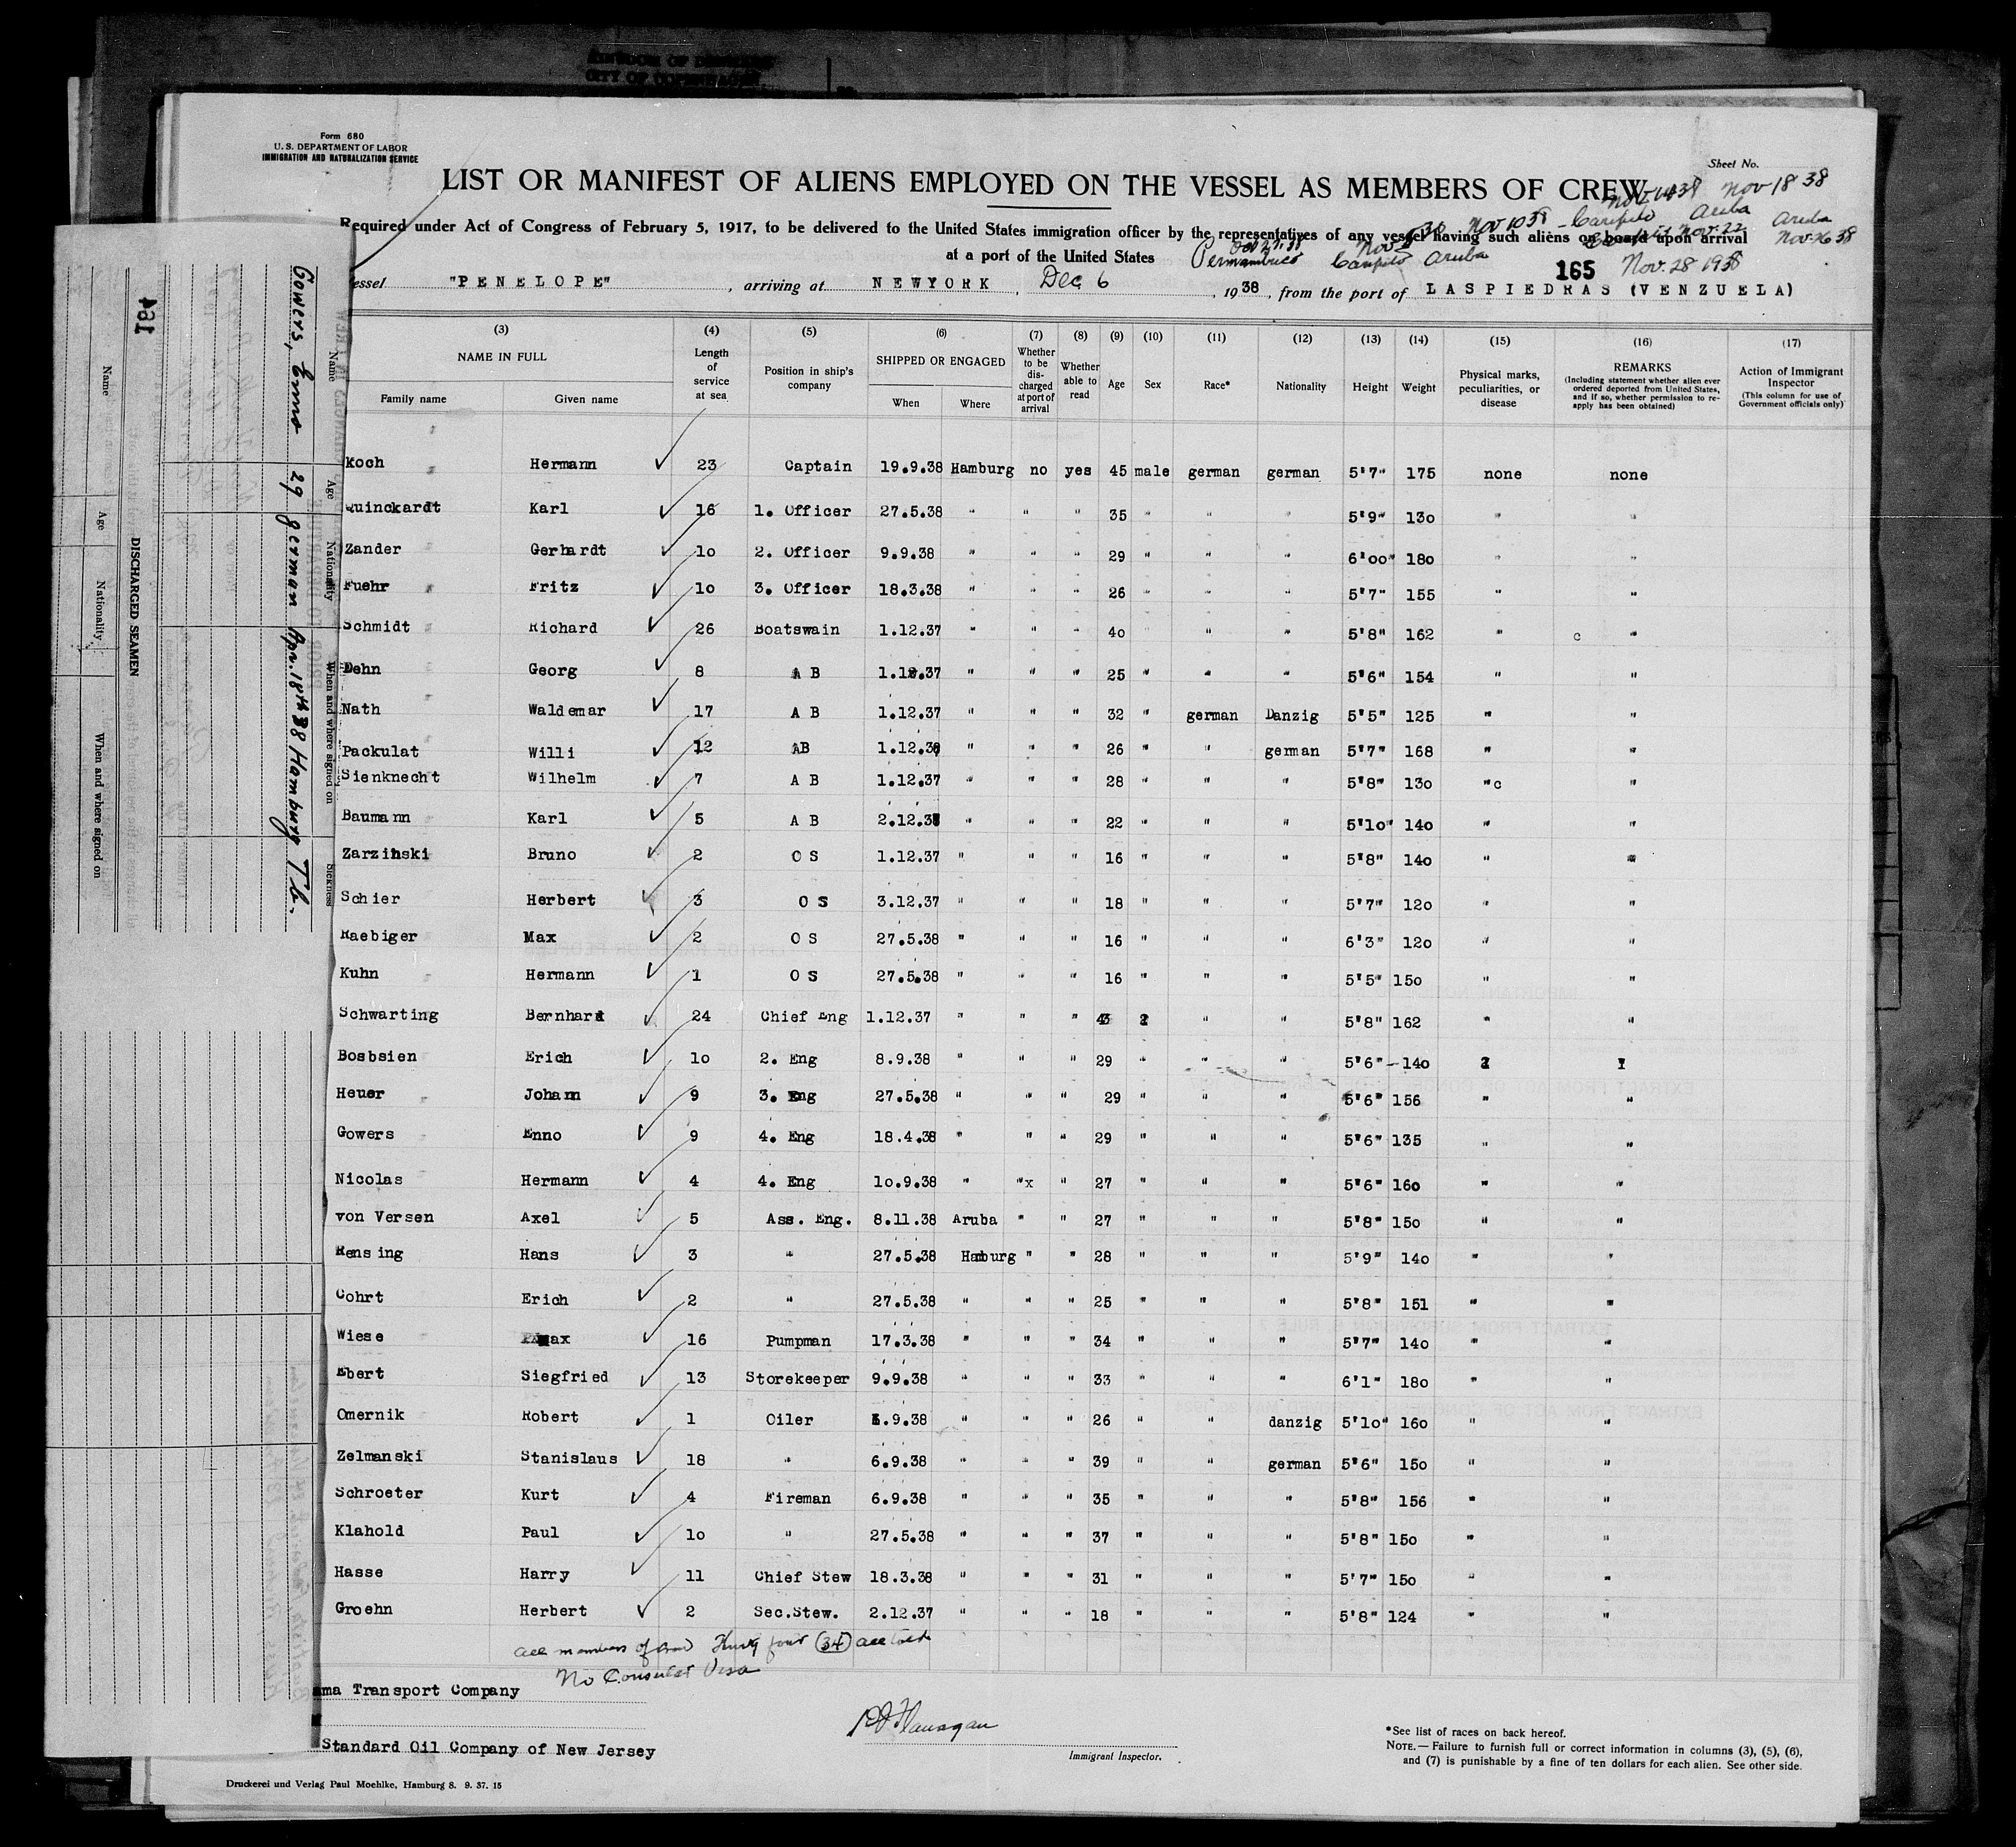 Form 680
U. S. DEPARTMENT OF LABOR
IMMIGRATION AND NATURALIZATION SERVICE
Sheet No.
LIST OR MANIFEST OF ALIENS EMPLOYED ON THE VESSEL AS MEMBERS OF CREW
Nov 18 38
Required under Act of Congress of February 5, 1917, to be delivered to the United States immigration officer by the representatives of any vessel having such aliens on board upon arrival
at a port of the United States
Nov 10 38 Caripito Aruba Aruba
Oct 27 38 Nov Nov. 22 Nov. 26 38
Pernambuco Caripito Aruba 165 Nov. 28 1938
essel "PENELOPE", arriving at NEWYORK, Dec 6, 1938, from the port of LASPIEDRAS (VENZUELA)
(3) (4) (5) (6) (7) (8) (9) (10) (11) (12) (13) (14) (15) (16) (17)
NAME IN FULL
Family name Given name
Length of service at sea
Position in ship's company
SHIPPED OR ENGAGED
When Where
Whether to be discharged at port of arrival
Whether able to read
Age Sex Race* Nationality Height Weight
Physical marks, peculiarities, or disease
REMARKS
(Including statement whether alien ever ordered deported from United States, and if so, whether permission to reapply has been obtained)
Action of Immigrant Inspector
(This column for use of Government officials only)
Koch Hermann 23 Captain 19.9.38 Hamburg no yes 45 male german german 5'7" 175 none none
Quinckardt Karl 16 1. Officer 27.5.38 " " " 35 " " " 5'9" 130 " "
Zander Gerhardt 10 2. Officer 9.9.38 " " " 29 " " " 6'00" 180 " "
Fuehr Fritz 10 3. Officer 18.3.38 " " " 26 " " " 5'7" 155 " "
Schmidt Richard 26 Boatswain 1.12.37 " " " 40 " " " 5'8" 162 " c "
Dehn Georg 8 A B 1.12.37 " " " 25 " " " 5'6" 154 " "
Nath Waldemar 17 A B 1.12.37 " " " 32 " german Danzig 5'5" 125 " "
Packulat Willi 12 AB 1.12.37 " " " 26 " " german 5'7" 168 " "
Sienknecht Wilhelm 7 A B 1.12.37 " " " 28 " " " 5'8" 130 "c "
Baumann Karl 5 A B 2.12.37 " " " 22 " " " 5'10" 140 " "
Zarzinski Bruno 2 O S 1.12.37 " " " 16 " " " 5'8" 140 " "
Schier Herbert 3 O S 3.12.37 " " " 18 " " " 5'7" 120 " "
Raebiger Max 2 O S 27.5.38 " " " 16 " " " 6'3" 120 " "
Kuhn Hermann 1 O S 27.5.38 " " " 16 " " " 5'5" 150 " "
Schwarting Bernhard 24 Chief Eng 1.12.37 " " " " " 5'8" 162 " "
Bosbsien Erich 10 2. Eng 8.9.38 " " " 29 " " " 5'6" 140
Heuer Johann 9 3. Eng 27.5.38 " " " 29 " " " 5'6" 156 " "
Gowers Enno 9 4. Eng 18.4.38 " " " 29 " " " 5'6" 135 " "
Nicolas Hermann 4 4. Eng 10.9.38 " "x " 27 " " " 5'6" 160 " "
von Versen Axel 5 Ass. Eng. 8.11.38 Aruba " " 27 " " " 5'8" 150 " "
Rensing Hans 3 " 27.5.38 Hamburg " " 28 " " " 5'9" 140 " "
Cohrt Erich 2 " 27.5.38 " " " 25 " " " 5'8" 151 " "
Wiese Max 16 Pumpman 17.3.38 " " " 34 " " " 5'7" 140 " "
Ebert Siegfried 13 Storekeeper 9.9.38 " " " 33 " " " 6'1" 180 " "
Omernik Robert 1 Oiler .9.38 " " " 26 " " danzig 5'10" 160 " "
Zelmanski Stanislaus 18 " 6.9.38 " " " 39 " " german 5'6" 150 " "
Schroeter Kurt 4 Fireman 6.9.38 " " " 35 " " " 5'8" 156 " "
Klahold Paul 10 " 27.5.38 " " " 37 " " " 5'8" 150 " "
Hasse Harry 11 Chief Stew 18.3.38 " " " 31 " " " 5'7" 150 " "
Groehn Herbert 2 Sec.Stew. 2.12.37 " " " 18 " " " 5'8" 124 " "
all members of crew Thirty four (34) all told
No Consular Visa
ama Transport Company
Standard Oil Company of New Jersey
Flanagan
Immigrant Inspector.
*See list of races on back hereof.
NOTE.— Failure to furnish full or correct information in columns (3), (5), (6),
and (7) is punishable by a fine of ten dollars for each alien. See other side.
Druckerei und Verlag Paul Moehlke, Hamburg 8. 9. 37. 15
Name Age Nationality When and where signed on Sickness
Gowers, Enno 29 german Apr. 18th 38 Hamburg T.b.
DISCHARGED SEAMEN
Name Age Nationality When and where signed on